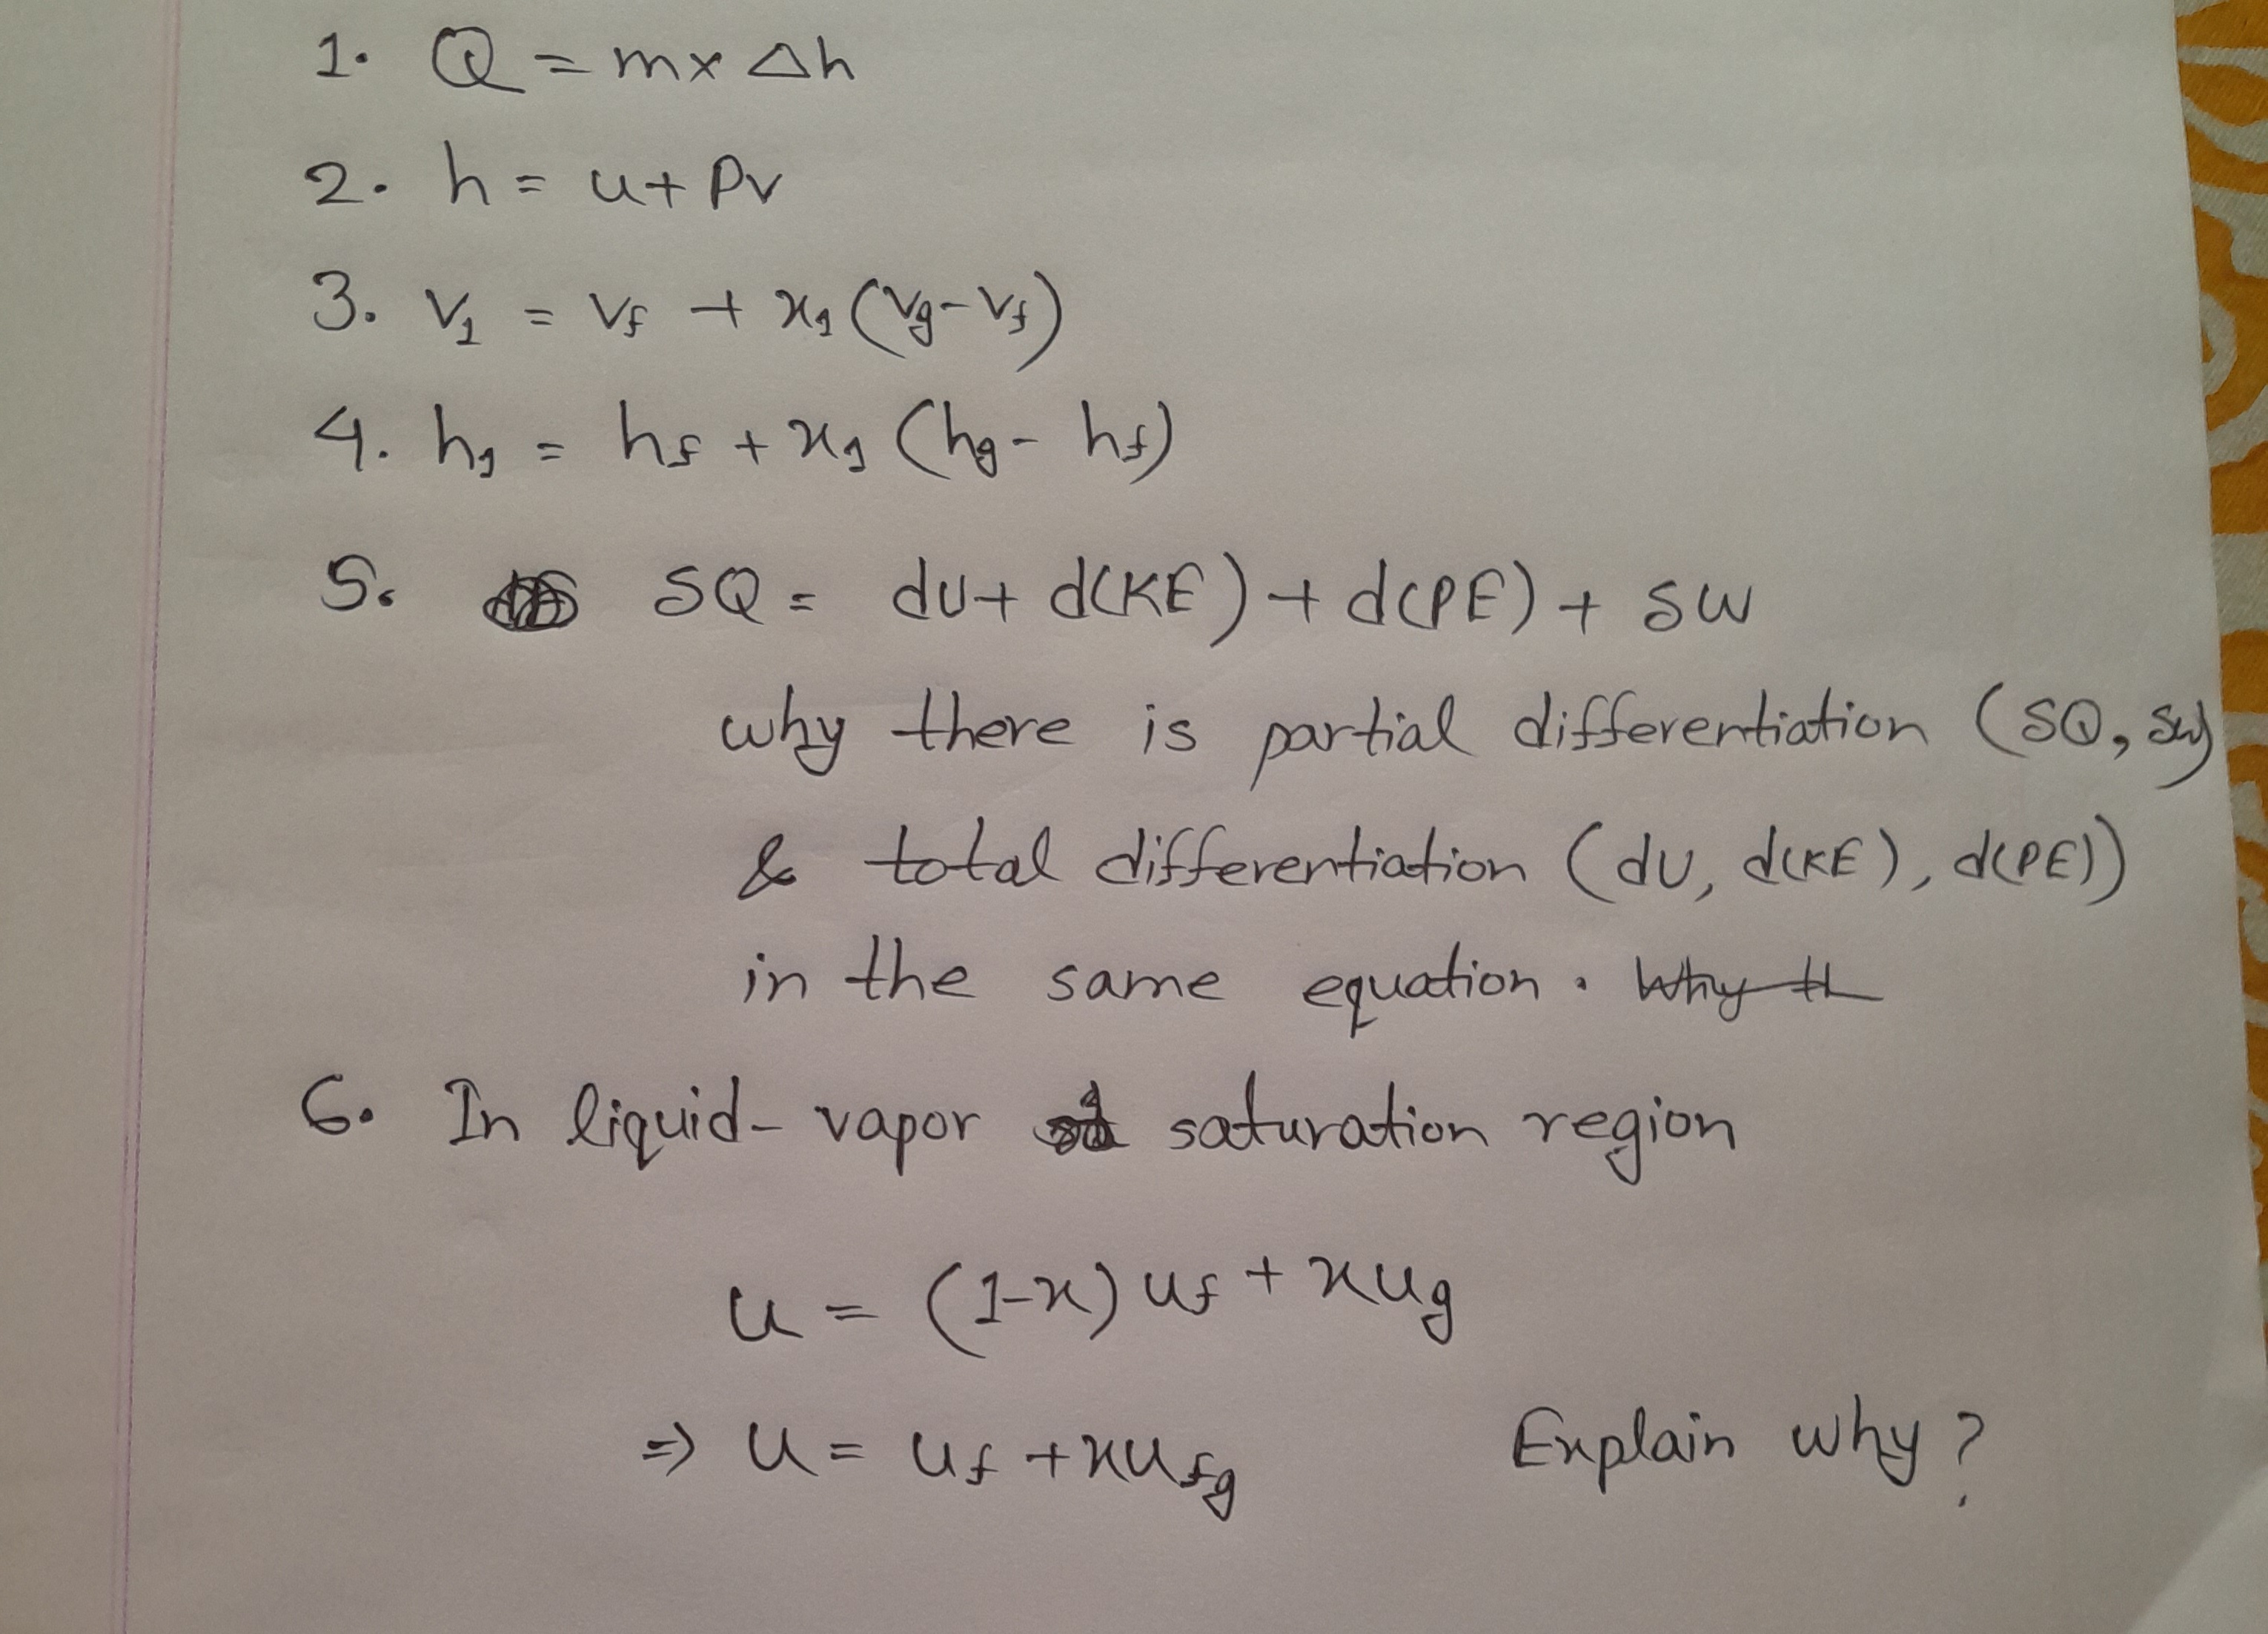 1. Q = m x Δh
2. h = u + Pv
3. v₁ = vf + x₁ (vg - vf)
4. h₁ = hf + x₁ (hg - hf)
5. δQ = dU + d(KE) + d(PE) + δW
why there is partial differentiation (δQ, δW)
& total differentiation (dU, d(KE), d(PE))
in the same equation. Why th
6. In liquid-vapor saturation region
u = (1-x) uf + xug
⇒ u = uf + xufg Explain why?